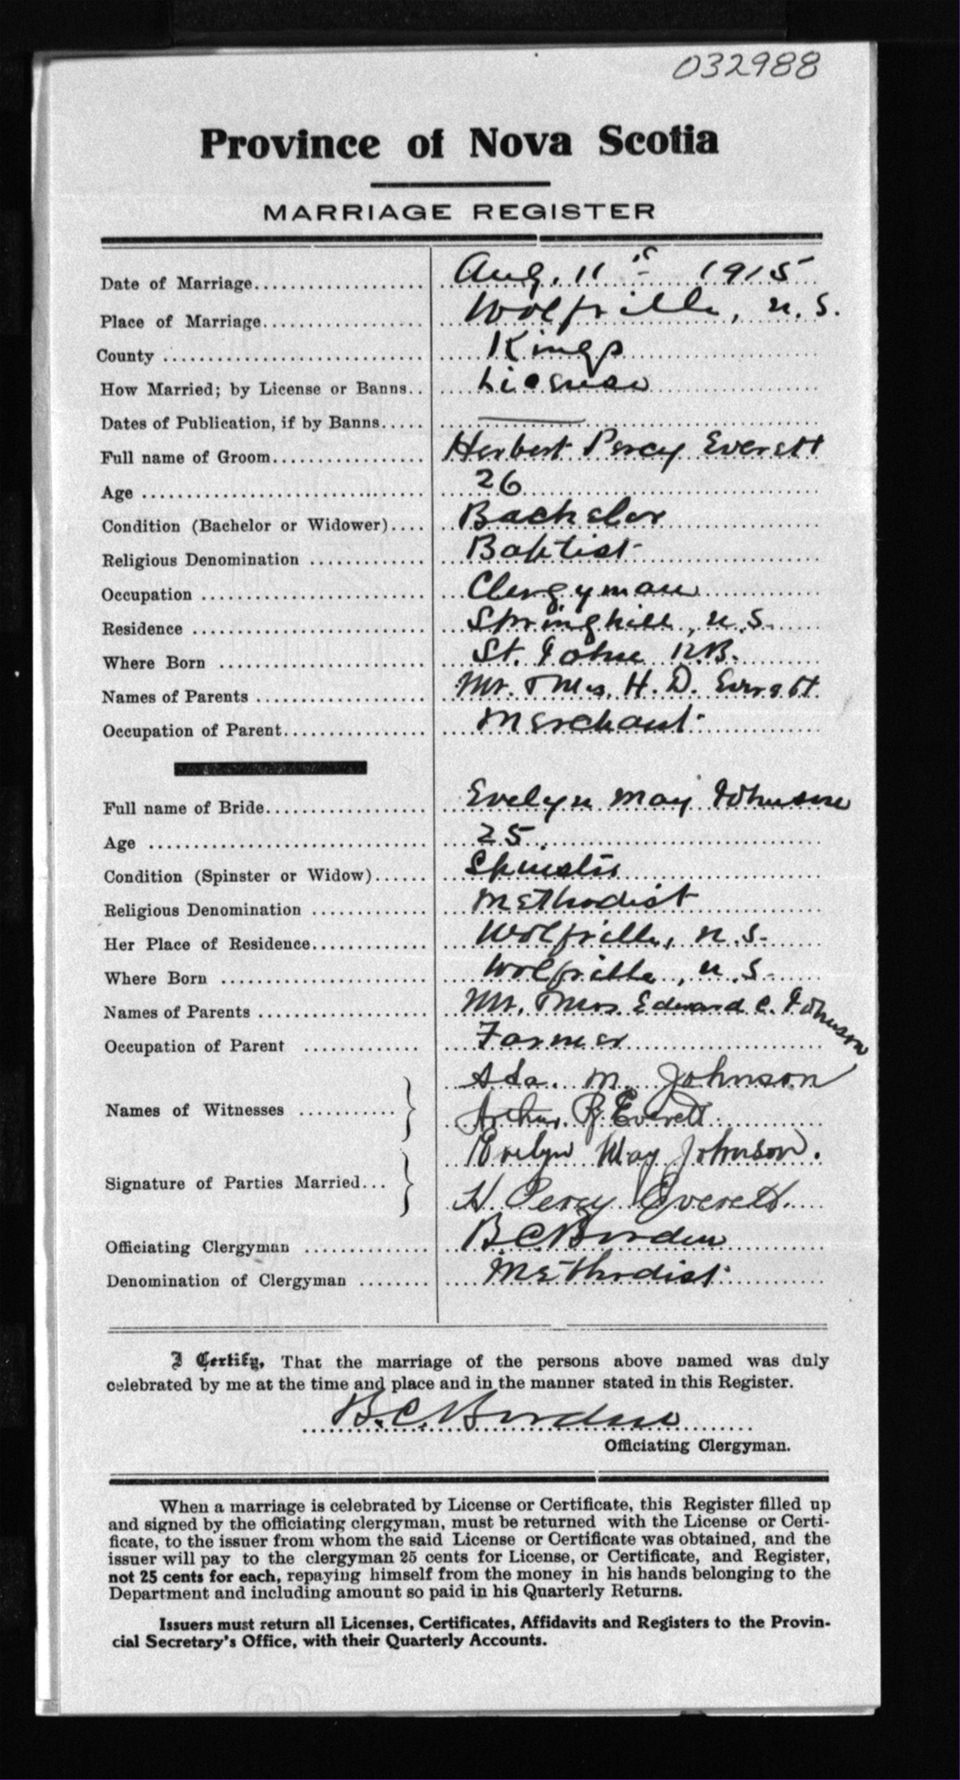 032988
Province of Nova Scotia
MARRIAGE REGISTER
Date of Marriage.................... Aug. 11 1915
Place of Marriage.................. Wolfville, N.S.
County ............................. Kings
How Married; by License or Banns.. License
Dates of Publication, if by Banns..... ———
Full name of Groom................. Herbert Percy Everett
Age ............................... 26
Condition (Bachelor or Widower).... Bachelor
Religious Denomination ............. Baptist
Occupation ......................... Clergyman
Residence .......................... Springhill, N.S.
Where Born ........................ St. John N.B.
Names of Parents .................. Mr. & Mrs. H. D. Everett
Occupation of Parent................ Merchant
Full name of Bride.................. Evelyn May Johnson
Age ................................ 25
Condition (Spinster or Widow)...... Spinster
Religious Denomination ............. Methodist
Her Place of Residence............. Wolfville, N.S.
Where Born ........................ Wolfville, N.S.
Names of Parents .................. Mr. & Mrs Edward C. Johnson
Occupation of Parent ............. Farmer
Names of Witnesses ........... } Ada. M. Johnson
Arthur R. Everett
Signature of Parties Married... } Evelyn May Johnson.
H. Percy Everett.
Officiating Clergyman .............. B.C. Borden
Denomination of Clergyman ........ Methodist
I Certify, That the marriage of the persons above named was duly
celebrated by me at the time and place and in the manner stated in this Register.
B.C. Borden
Officiating Clergyman.
When a marriage is celebrated by License or Certificate, this Register filled up
and signed by the officiating clergyman, must be returned with the License or Certi-
ficate, to the issuer from whom the said License or Certificate was obtained, and the
issuer will pay to the clergyman 25 cents for License, or Certificate, and Register,
not 25 cents for each, repaying himself from the money in his hands belonging to the
Department and including amount so paid in his Quarterly Returns.
Issuers must return all Licenses, Certificates, Affidavits and Registers to the Provin-
cial Secretary's Office, with their Quarterly Accounts.